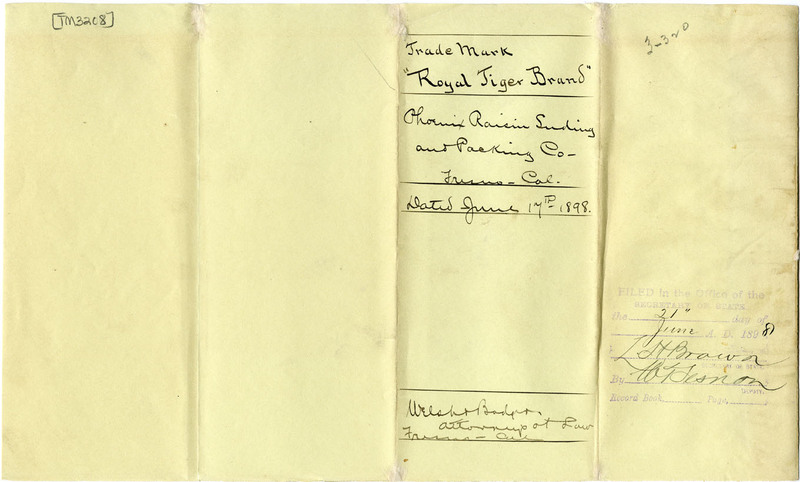 [TM3208]
3-320
Trade Mark
"Royal Tiger Brand"
Phoenix Raisin Seeding
and Packing Co-
Fresno - Cal.
Dated June 17th 1898.
Welsh &
Attorneys at Law
Fresno - Cal
FILED in the Office of the
SECRETARY OF STATE
the 21" day of
June A. D. 1898
L H Brown
SECRETARY OF STATE
By
DEPUTY.
Record Book Page